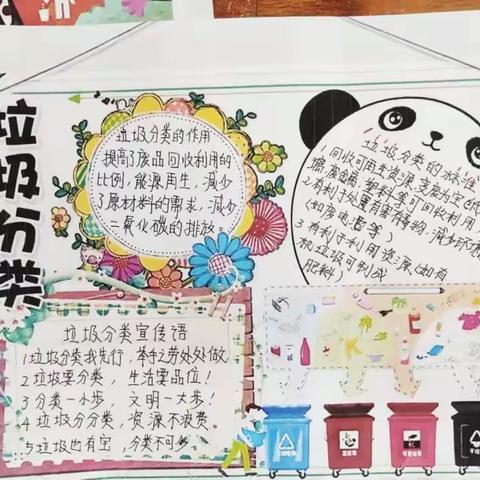 垃圾分类
垃圾分类的作用
提高了废品回收利用的
比例,能源再生,减少
了原材料的需求,减少
二氧化碳的排放。
垃圾分类的标准
1.回收可用生资源,变废为宝(如
璃,废金属,塑料等可回收利用
2.有利于处置有害毒物,减少环境
(如废电池等)
3.有利于利用资源(如有
机垃圾可制成
肥料)
垃圾分类宣传语
1.垃圾分类我先行,举手之劳处处做。
2.垃圾要分类,生活要品位!
3.分类一小步,文明一大步!
4.垃圾分分类,资源不浪费。
5.垃圾也有宝,分类不可少